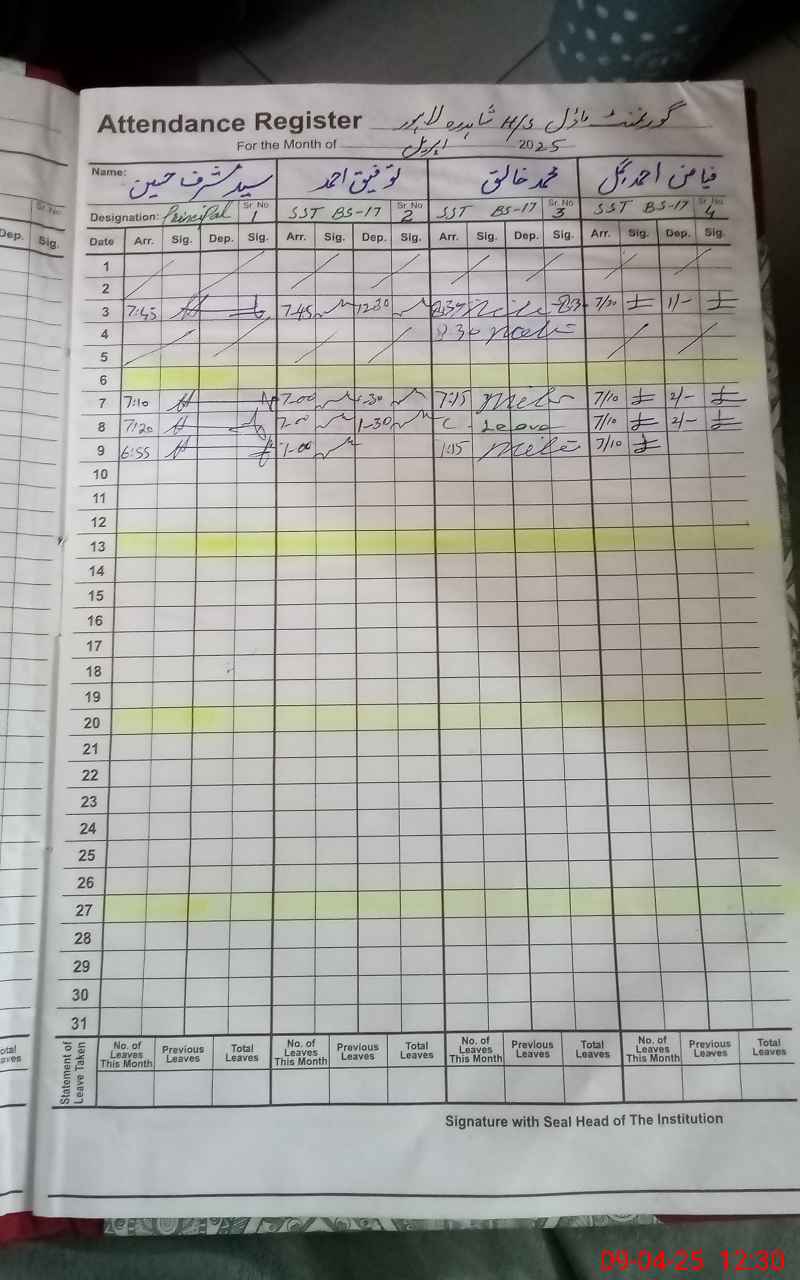 Attendance Register گورنمنٹ ماڈل H/S شاہدرہ لاہور
For the Month of اپریل 2025
Name: سید مشرف حسین توفیق احمد محمد خالق فیاض احمد
Designation: Principal Sr. No 1 SST BS-17 Sr. No 2 SST BS-17 Sr. No 3 SST BS-17 Sr. No 4
Dep. Sig. Date Arr. Sig. Dep. Sig. Arr. Sig. Dep. Sig. Arr. Sig. Dep. Sig. Arr. Sig. Dep. Sig.
1
2
3 7:45 7-45 12-30 7/30 1/-
4 8:30
5
6
7 7:10 7-00 1-30 7:15 7/10 2/-
8 7:20 7-00 1-30 C - Leave 7/10 2/-
9 6:55 7-00 7/10
10
11
12
13
14
15
16
17
18
19
20
21
22
23
24
25
26
27
28
29
30
31
Statement of Leave Taken No. of Leaves This Month Previous Leaves Total Leaves No. of Leaves This Month Previous Leaves Total Leaves No. of Leaves This Month Previous Leaves Total Leaves No. of Leaves This Month Previous Leaves Total Leaves
Signature with Seal Head of The Institution
09-04-25 12:30